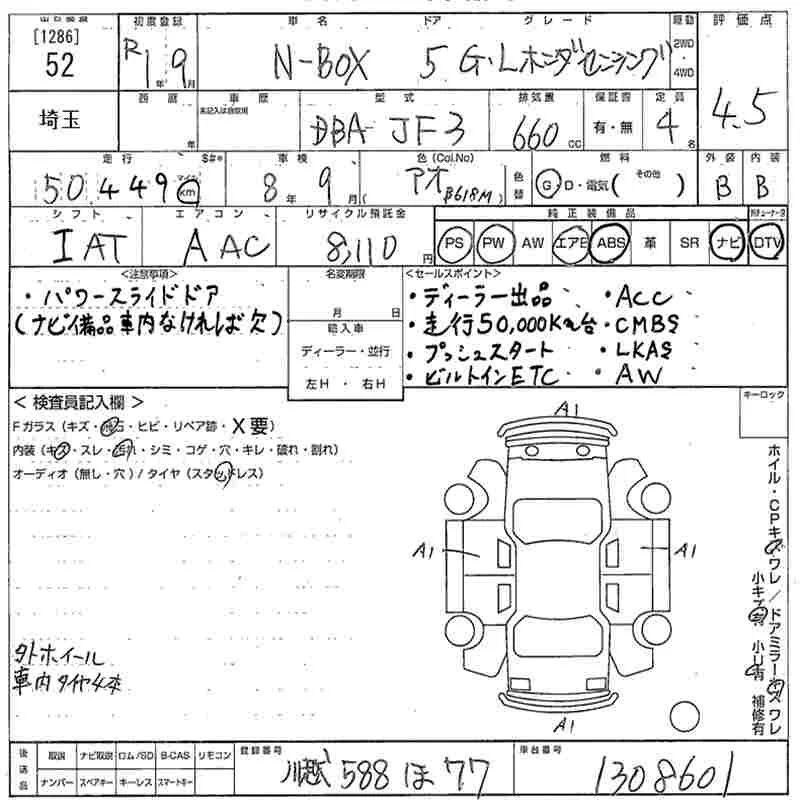 [1286]
52
初度登録
車名
ドア
グレード
駆動
評価点
R1年9月
N-BOX
5
G・Lホンダセンシング
2WD
4WD
4.5
埼玉
西暦
車歴
型式
排気量
保証書
定員
年
未記入は自家用
DBA JF3
660cc
有・無
4名
走行
車検
色(Col.No)
色替
燃料
外装
内装
50,449
マイル
km
8年9月
アオ
B618M
G・D・電気(その他)
B
B
シフト
エアコン
リサイクル預託金
純正装備品
IAT
AAC
8,110円
PS
PW
AW
エアB
ABS
革
SR
ナビ
DTV
<注意事項>
・パワースライドドア
(ナビ備品車内なければ欠)
名変期限
月 日
輸入車
ディーラー・並行
左H ・ 右H
<セールスポイント>
・ディーラー出品 ・ACC
・走行50,000Km台 ・CMBS
・プッシュスタート ・LKAS
・ビルトインETC ・AW
キーロック
<検査員記入欄>
Fガラス(キズ・飛石・ヒビ・リペア跡・X要)
内装(キズ・スレ・汚れ・シミ・コゲ・穴・キレ・破れ・割れ)
オーディオ(無し・穴)/タイヤ(スタッドレス)
A1
A1
A1
A1
ホイル・CPキズワレ/ドアミラーキズワレ
補修有
外ホイール
車内タイヤ4本
後送品
取説
ナビ取説
ロム/SD
B-CAS
リモコン
ナンバー
スペアキー
キーレス
スマートキー
登録番号
川越 588 ほ 77
車台番号
1308601